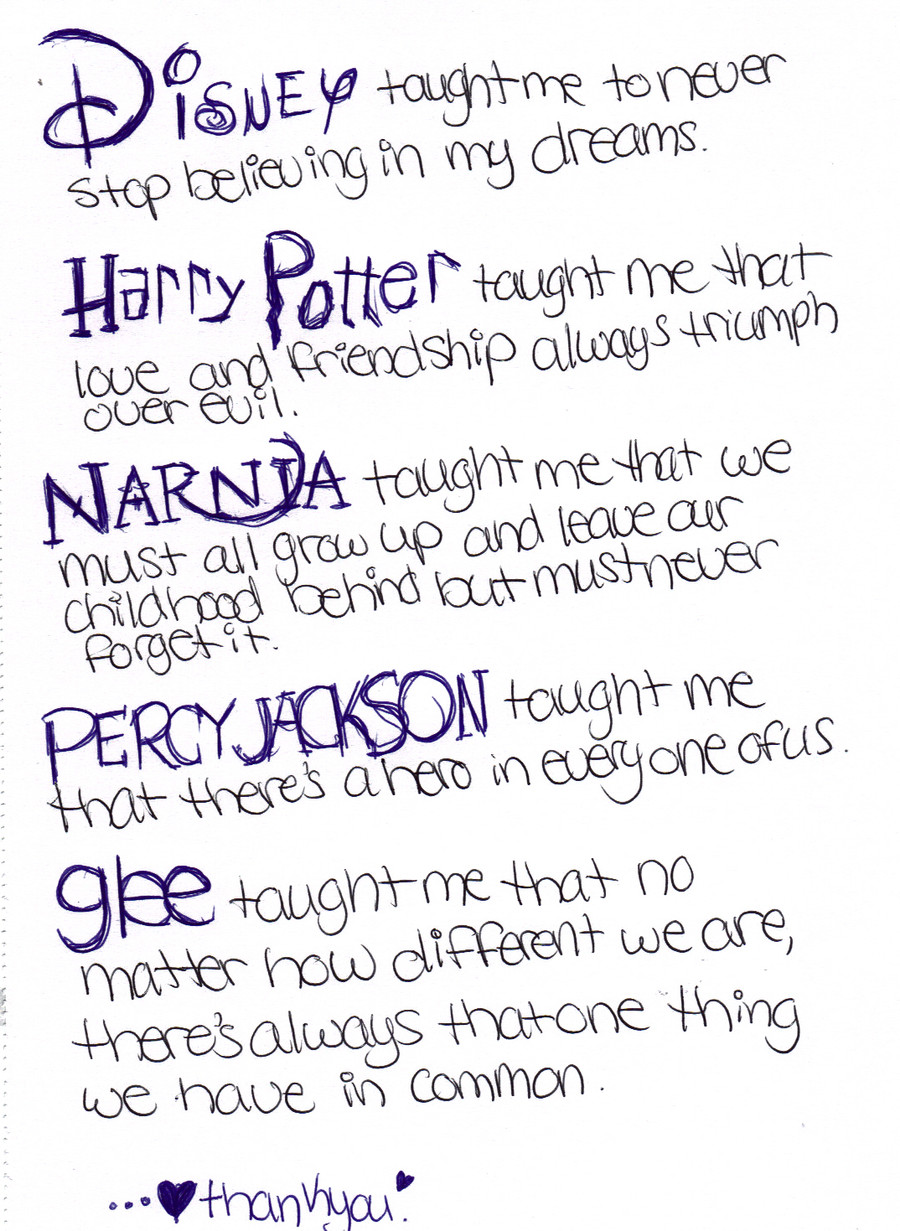 Disney taught me to never
stop believing in my dreams.
Harry Potter taught me that
love and friendship always triumph
over evil.
NARNIA taught me that we
must all grow up and leave our
childhood behind but must never
forget it.
PERCY JACKSON taught me
that there's a hero in everyone of us.
glee taught me that no
matter how different we are,
there's always that one thing
we have in common.
...♥thankyou!